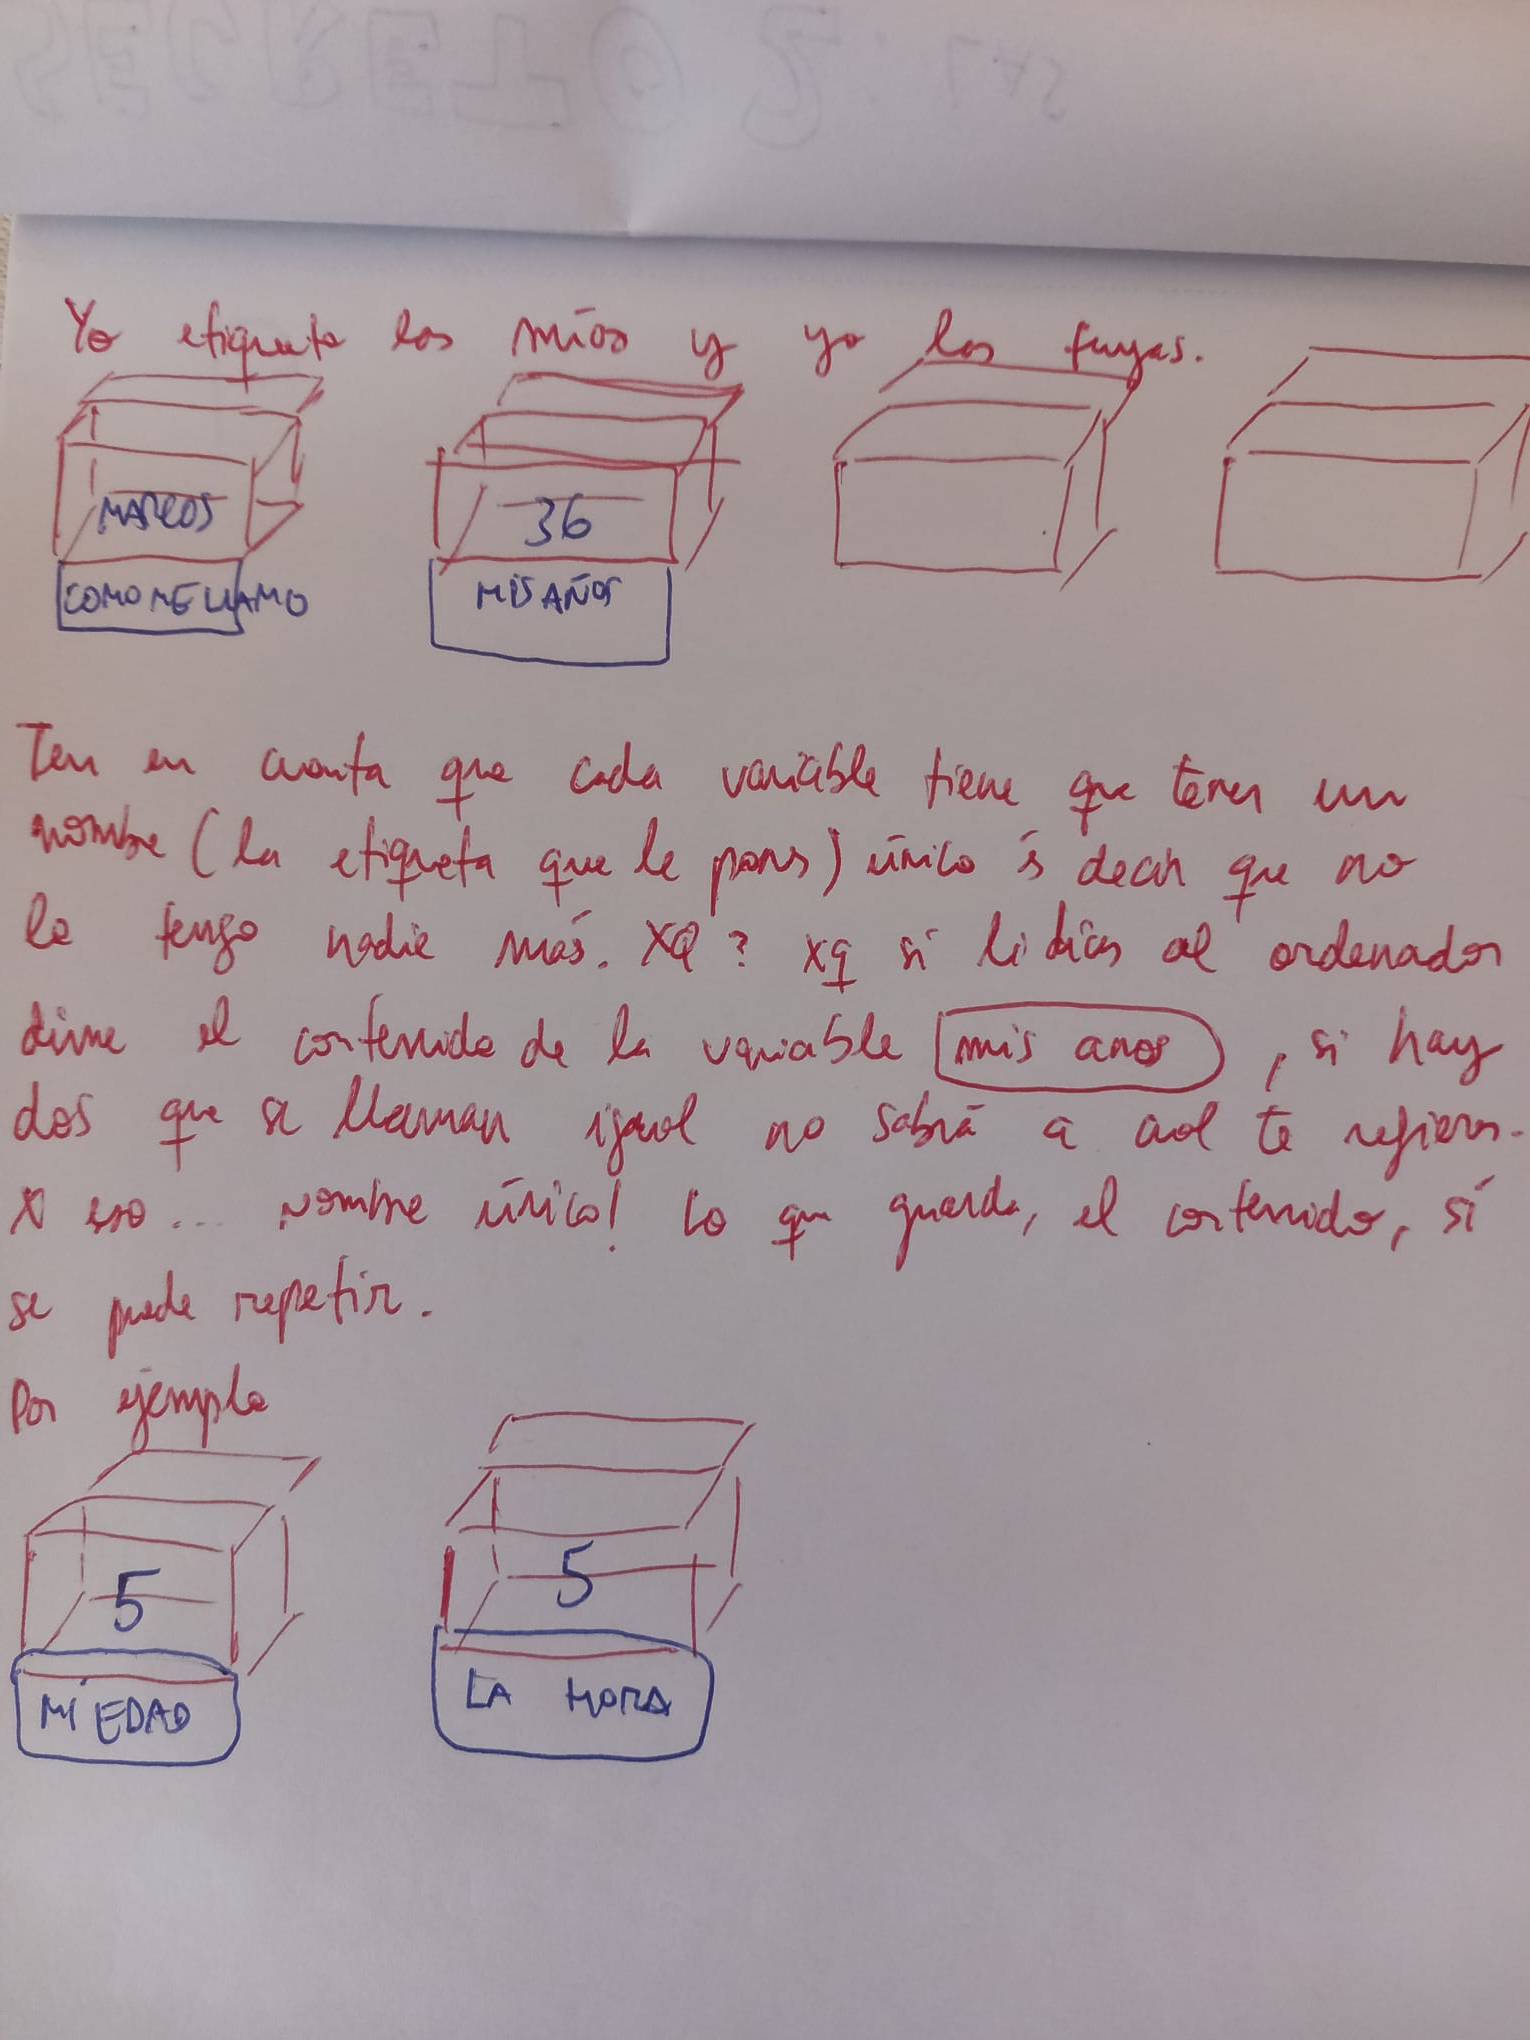 Yo etiqueto los míos y yo los tuyas.
MARCOS
36
COMO ME LLAMO
MIS AÑOS
Ten en cuenta que cada variable tiene que tener un
nombre (la etiqueta que le pones) único es decir que no
lo tenga nadie más. XQ? xq si li dices al ordenador
dime el contenido de la variable mis anos, si hay
dos que se llaman igual no sabrá a cual te refieres.
X eso... nombre único! Lo que guarda, el contenido, sí
se puede repetir.
Por ejemplo
5
5
MI EDAD
LA HORA